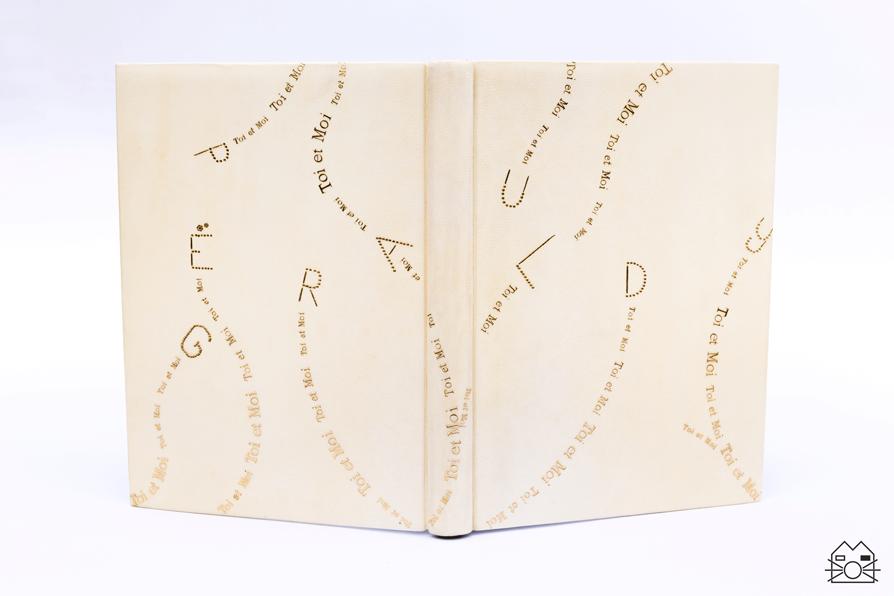 P
Toi et Moi Toi et Moi
Toi et Moi
Toi et Moi
Toi et Moi
A
et Moi
É
Toi et Moi
Toi et Moi
Toi et Moi
Toi et Moi
Toi et Moi
G
Toi et Moi
Toi et Moi
Toi et Moi
R
Toi et Moi
Toi et Moi
Toi et Moi
Toi et Moi
Toi et Moi
Toi
Toi et Moi
Toi et Moi
Toi et Moi
Toi et Moi
Toi et Moi
Toi et Moi
U
Toi et Moi
Toi et Moi
Toi et Moi
Toi et Moi
Toi et Moi
L
Toi et Moi
D
Toi et Moi
Toi et Moi
Toi et Moi
Toi et Moi
Toi et Moi
Toi et Moi
Y
Toi et Moi
Toi et Moi
Toi et Moi
Toi et Moi
Toi et Moi